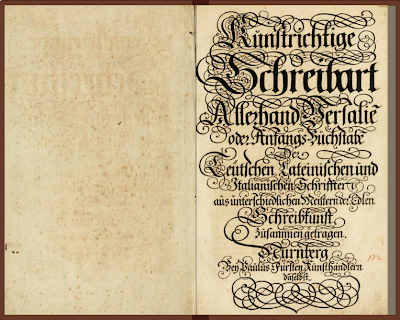 Kunstrichtige
Schreibart
Allerhand Versalie̅
oder Anfangs Buchstabe
Der
Teutschen Lateinischen und
Italianischen Schrifften
aus unterschiedlichen Meistern der Edlen
Schreibkunst
zusammen getragen.
Nürnberg
Bey Paulus Fürsten Kunsthändlern
daselbst.